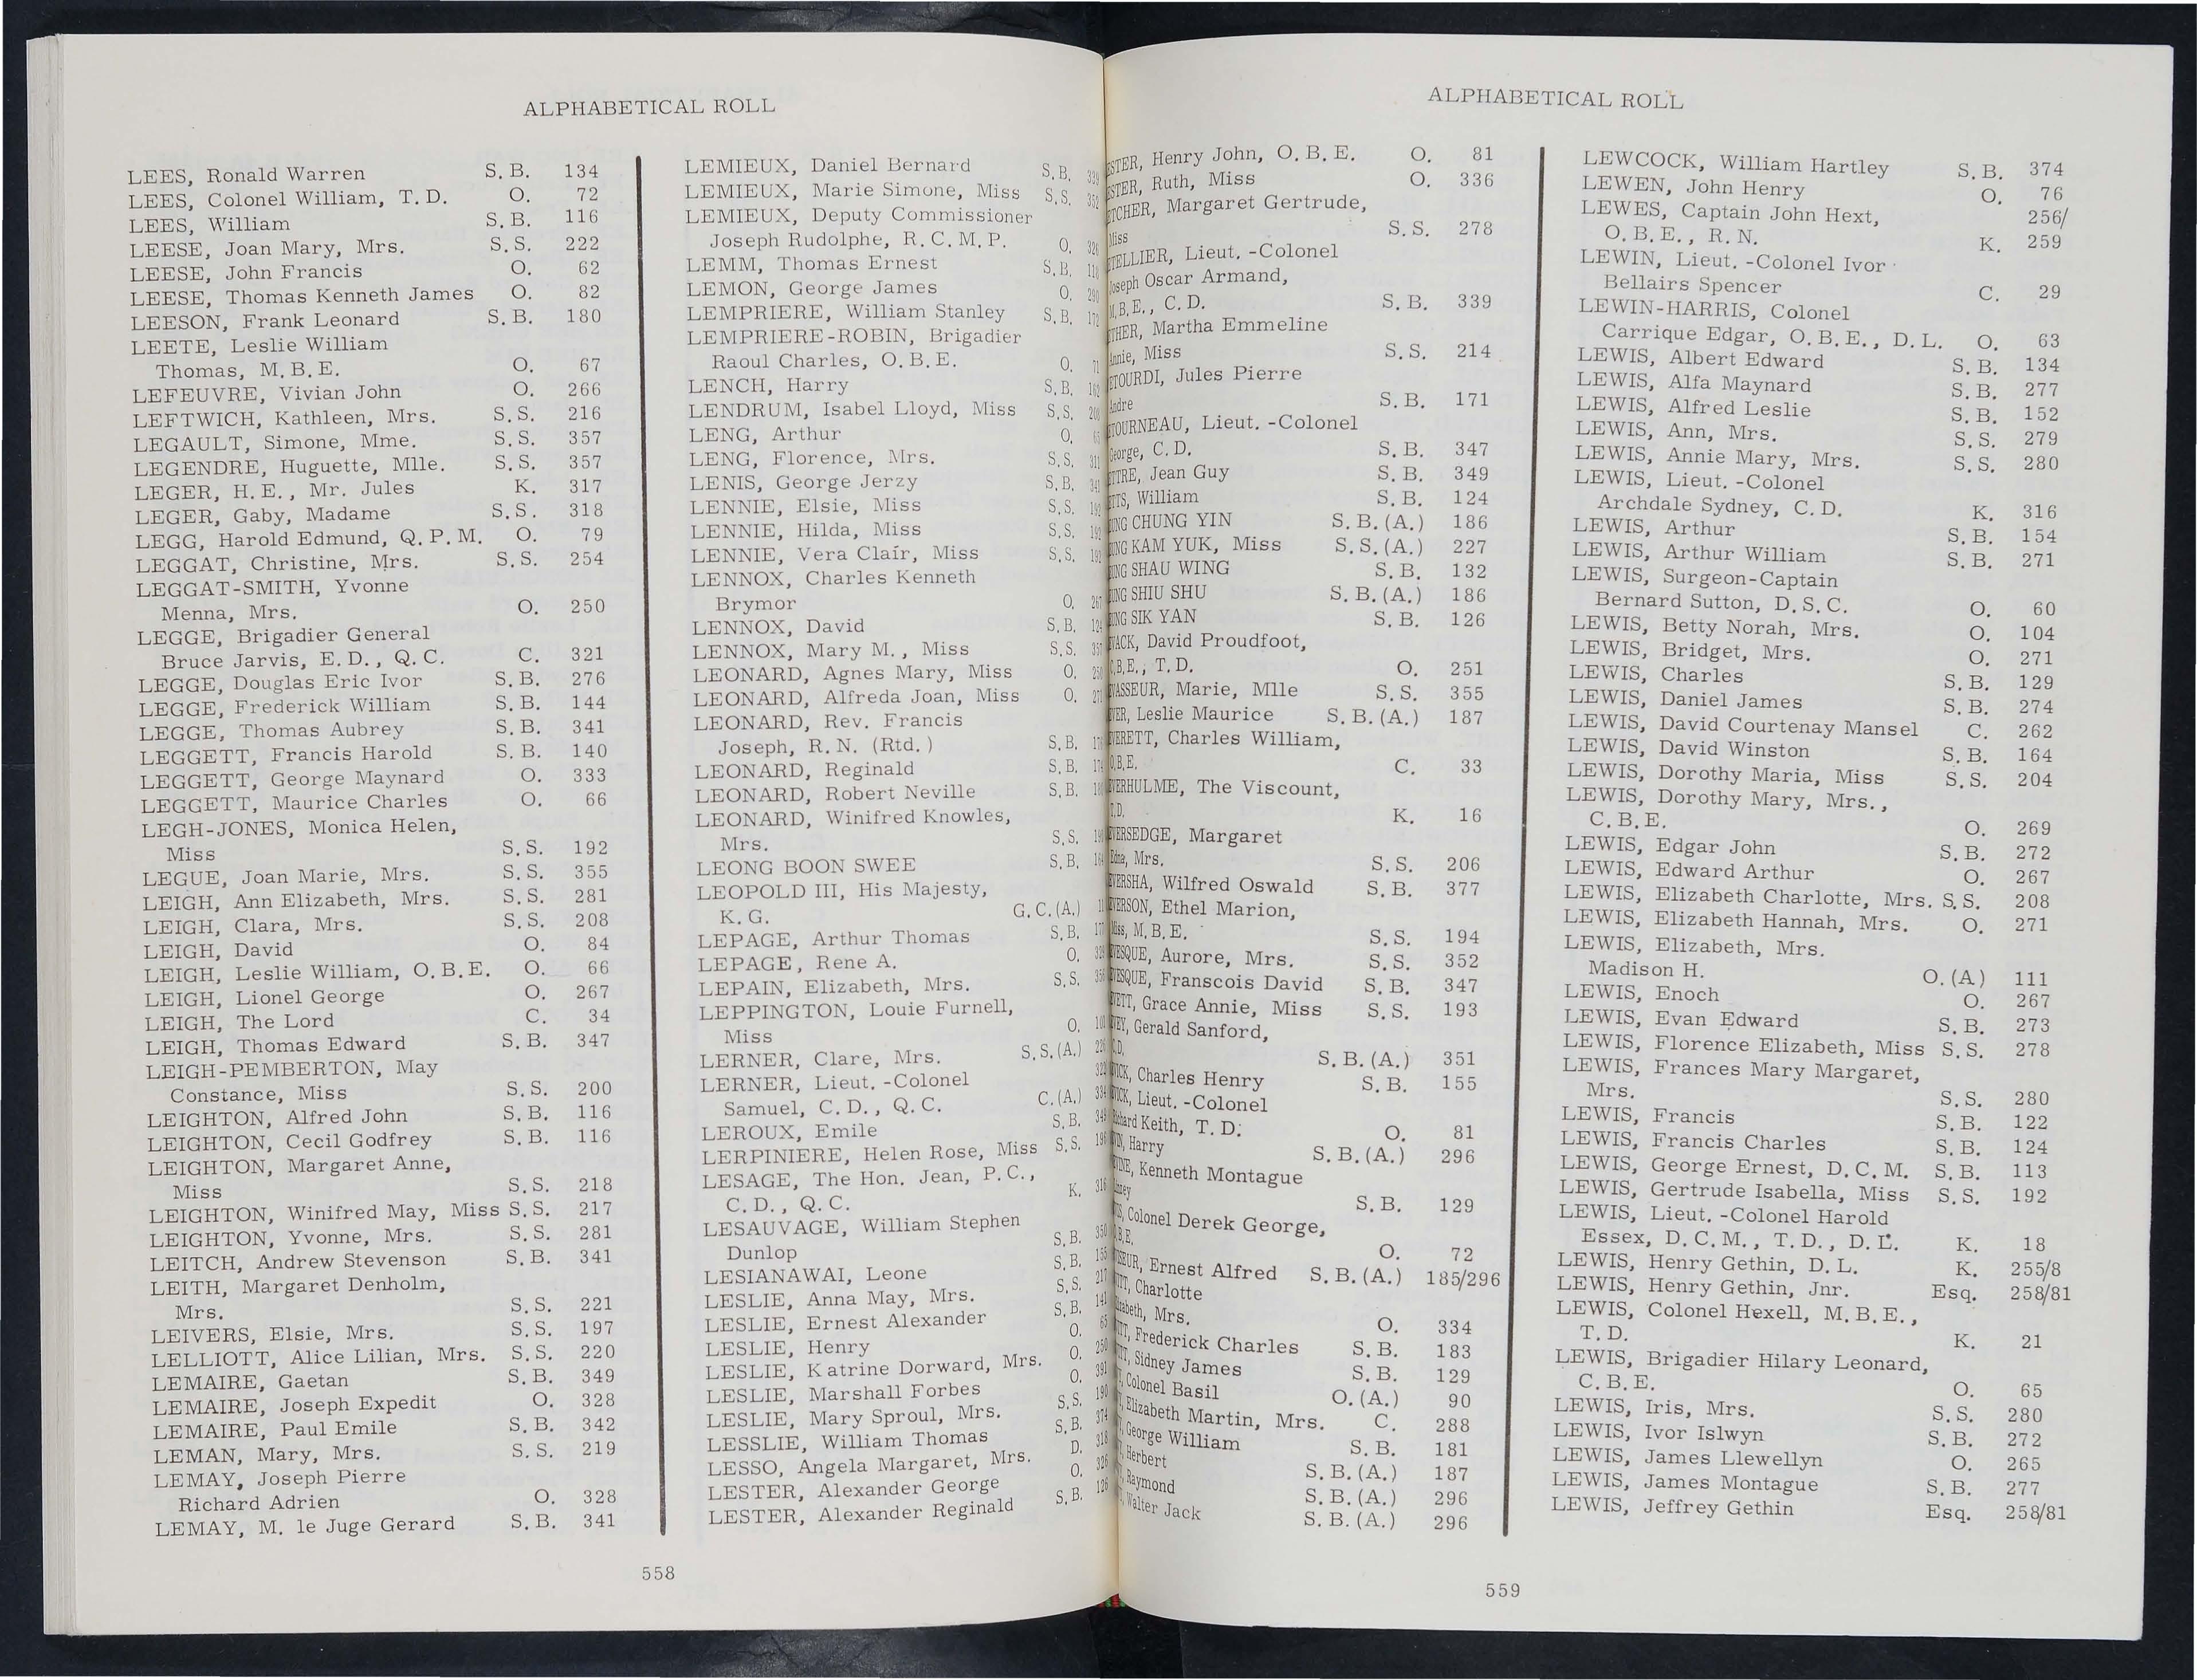 ALPHABETICAL ROLL
LEES, Ronald Warren S. B. 134
LEES, Colonel William, T. D. O. 72
LEES, William S. B. 116
LEESE, Joan Mary, Mrs. S. S. 222
LEESE, John Francis O. 62
LEESE, Thomas Kenneth James O. 82
LEESON, Frank Leonard S. B. 180
LEETE, Leslie William
Thomas, M. B. E. O. 67
LEFEUVRE, Vivian John O. 266
LEFTWICH, Kathleen, Mrs. S. S. 216
LEGAULT, Simone, Mme. S. S. 357
LEGENDRE, Huguette, Mlle. S. S. 357
LEGER, H. E., Mr. Jules K. 317
LEGER, Gaby, Madame S. S. 318
LEGG, Harold Edmund, Q. P. M. O. 79
LEGGAT, Christine, Mrs. S. S. 254
LEGGAT-SMITH, Yvonne
Menna, Mrs. O. 250
LEGGE, Brigadier General
Bruce Jarvis, E. D., Q. C. C. 321
LEGGE, Douglas Eric Ivor S. B. 276
LEGGE, Frederick William S. B. 144
LEGGE, Thomas Aubrey S. B. 341
LEGGETT, Francis Harold S. B. 140
LEGGETT, George Maynard O. 333
LEGGETT, Maurice Charles O. 66
LEGH-JONES, Monica Helen,
Miss S. S. 192
LEGUE, Joan Marie, Mrs. S. S. 355
LEIGH, Ann Elizabeth, Mrs. S. S. 281
LEIGH, Clara, Mrs. S. S. 208
LEIGH, David O. 84
LEIGH, Leslie William, O. B. E. O. 66
LEIGH, Lionel George O. 267
LEIGH, The Lord C. 34
LEIGH, Thomas Edward S. B. 347
LEIGH-PEMBERTON, May
Constance, Miss S. S. 200
LEIGHTON, Alfred John S. B. 116
LEIGHTON, Cecil Godfrey S. B. 116
LEIGHTON, Margaret Anne,
Miss S. S. 218
LEIGHTON, Winifred May, Miss S. S. 217
LEIGHTON, Yvonne, Mrs. S. S. 281
LEITCH, Andrew Stevenson S. B. 341
LEITH, Margaret Denholm,
Mrs. S. S. 221
LEIVERS, Elsie, Mrs. S. S. 197
LELLIOTT, Alice Lilian, Mrs. S. S. 220
LEMAIRE, Gaetan S. B. 349
LEMAIRE, Joseph Expedit O. 328
LEMAIRE, Paul Emile S. B. 342
LEMAN, Mary, Mrs. S. S. 219
LEMAY, Joseph Pierre
Richard Adrien O. 328
LEMAY, M. le Juge Gerard S. B. 341
LEMIEUX, Daniel Bernard S. B.
LEMIEUX, Marie Simone, Miss S. S. 352
LEMIEUX, Deputy Commissioner
Joseph Rudolphe, R. C. M. P. O.
LEMM, Thomas Ernest S. B.
LEMON, George James O. 290
LEMPRIERE, William Stanley S. B. 172
LEMPRIERE-ROBIN, Brigadier
Raoul Charles, O. B. E. O. 71
LENCH, Harry S. B. 162
LENDRUM, Isabel Lloyd, Miss S. S.
LENG, Arthur O.
LENG, Florence, Mrs. S. S. 311
LENIS, George Jerzy S. B. 341
LENNIE, Elsie, Miss S. S. 192
LENNIE, Hilda, Miss S. S. 192
LENNIE, Vera Clair, Miss S. S. 192
LENNOX, Charles Kenneth
Brymor O. 267
LENNOX, David S. B. 124
LENNOX, Mary M., Miss S. S. 357
LEONARD, Agnes Mary, Miss O. 250
LEONARD, Alfreda Joan, Miss O.
LEONARD, Rev. Francis
Joseph, R. N. (Rtd. ) S. B.
LEONARD, Reginald S. B. 174
LEONARD, Robert Neville S. B.
LEONARD, Winifred Knowles,
Mrs. S. S.
LEONG BOON SWEE S. B. 164
LEOPOLD III, His Majesty,
K. G. G. C. (A.) 11
LEPAGE, Arthur Thomas S. B. 177
LEPAGE, Rene A. O. 328
LEPAIN, Elizabeth, Mrs. S. S. 356
LEPPINGTON, Louie Furnell,
Miss O.
LERNER, Clare, Mrs. S. S. (A.)
LERNER, Lieut. -Colonel 323
Samuel, C. D., Q. C. C. (A.) 334
LEROUX, Emile S. B. 349
LERPINIERE, Helen Rose, Miss S. S. 196
LESAGE, The Hon. Jean, P. C.,
C. D., Q. C. K. 316
LESAUVAGE, William Stephen
Dunlop S. B. 350
LESIANAWAI, Leone S. B. 155
LESLIE, Anna May, Mrs. S. S. 217
LESLIE, Ernest Alexander S. B. 141
LESLIE, Henry O. 65
LESLIE, Katrine Dorward, Mrs. O. 250
LESLIE, Marshall Forbes O. 391
LESLIE, Mary Sproul, Mrs. S. S. 190
LESSLIE, William Thomas S. B. 374
LESSO, Angela Margaret, Mrs. D. 318
LESTER, Alexander George O. 326
LESTER, Alexander Reginald S. B. 126
558
ALPHABETICAL ROLL
ESTER, Henry John, O. B. E. O. 81
ESTER, Ruth, Miss O. 336
ETCHER, Margaret Gertrude,
Miss S. S. 278
ETELLIER, Lieut. -Colonel
Joseph Oscar Armand,
M. B. E., C. D. S. B. 339
ETHER, Martha Emmeline
Annie, Miss S. S. 214
ETOURDI, Jules Pierre
Andre S. B. 171
ETOURNEAU, Lieut. -Colonel
George, C. D. S. B. 347
ETTRE, Jean Guy S. B. 349
ETTS, William S. B. 124
UNG CHUNG YIN S. B. (A.) 186
UNG KAM YUK, Miss S. S. (A.) 227
UNG SHAU WING S. B. 132
UNG SHIU SHU S. B. (A.) 186
UNG SIK YAN S. B. 126
VACK, David Proudfoot,
C. B. E., T. D. O. 251
VASSEUR, Marie, Mlle S. S. 355
VER, Leslie Maurice S. B. (A.) 187
VERETT, Charles William,
O. B. E. C. 33
VERHULME, The Viscount,
T. D. K. 16
VERSEDGE, Margaret
Edna, Mrs. S. S. 206
VERSHA, Wilfred Oswald S. B. 377
VERSON, Ethel Marion,
Miss, M. B. E. S. S. 194
VESQUE, Aurore, Mrs. S. S. 352
VESQUE, Franscois David S. B. 347
VETT, Grace Annie, Miss S. S. 193
VEY, Gerald Sanford,
C. D. S. B. (A.) 351
VICK, Charles Henry S. B. 155
VICK, Lieut. -Colonel
Richard Keith, T. D. O. 81
Harry S. B. (A.) 296
Kenneth Montague
S. B. 129
Colonel Derek George,
B. E. O. 72
SEUR, Ernest Alfred S. B. (A.) 185/296
Charlotte
Elizabeth, Mrs. O. 334
Frederick Charles S. B. 183
Sidney James S. B. 129
Colonel Basil O. (A.) 90
Elizabeth Martin, Mrs. C. 288
George William S. B. 181
Herbert S. B. (A.) 187
Raymond S. B. (A.) 296
Walter Jack S. B. (A.) 296
LEWCOCK, William Hartley S. B. 374
LEWEN, John Henry O. 76
LEWES, Captain John Hext, 256/
O. B. E., R. N. K. 259
LEWIN, Lieut. -Colonel Ivor
Bellairs Spencer C. 29
LEWIN-HARRIS, Colonel
Carrique Edgar, O. B. E., D. L. O. 63
LEWIS, Albert Edward S. B. 134
LEWIS, Alfa Maynard S. B. 277
LEWIS, Alfred Leslie S. B. 152
LEWIS, Ann, Mrs. S. S. 279
LEWIS, Annie Mary, Mrs. S. S. 280
LEWIS, Lieut. -Colonel
Archdale Sydney, C. D. K. 316
LEWIS, Arthur S. B. 154
LEWIS, Arthur William S. B. 271
LEWIS, Surgeon-Captain
Bernard Sutton, D. S. C. O. 60
LEWIS, Betty Norah, Mrs. O. 104
LEWIS, Bridget, Mrs. O. 271
LEWIS, Charles S. B. 129
LEWIS, Daniel James S. B. 274
LEWIS, David Courtenay Mansel C. 262
LEWIS, David Winston S. B. 164
LEWIS, Dorothy Maria, Miss S. S. 204
LEWIS, Dorothy Mary, Mrs.,
C. B. E. O. 269
LEWIS, Edgar John S. B. 272
LEWIS, Edward Arthur O. 267
LEWIS, Elizabeth Charlotte, Mrs. S. S. 208
LEWIS, Elizabeth Hannah, Mrs. O. 271
LEWIS, Elizabeth, Mrs.
Madison H. O. (A) 111
LEWIS, Enoch O. 267
LEWIS, Evan Edward S. B. 273
LEWIS, Florence Elizabeth, Miss S. S. 278
LEWIS, Frances Mary Margaret,
Mrs. S. S. 280
LEWIS, Francis S. B. 122
LEWIS, Francis Charles S. B. 124
LEWIS, George Ernest, D. C. M. S. B. 113
LEWIS, Gertrude Isabella, Miss S. S. 192
LEWIS, Lieut. -Colonel Harold
Essex, D. C. M., T. D., D. L. K. 18
LEWIS, Henry Gethin, D. L. K. 255/8
LEWIS, Henry Gethin, Jnr. Esq. 258/81
LEWIS, Colonel Hexell, M. B. E.,
T. D. K. 21
LEWIS, Brigadier Hilary Leonard,
C. B. E. O. 65
LEWIS, Iris, Mrs. S. S. 280
LEWIS, Ivor Islwyn S. B. 272
LEWIS, James Llewellyn O. 265
LEWIS, James Montague S. B. 277
LEWIS, Jeffrey Gethin Esq. 258/81
559